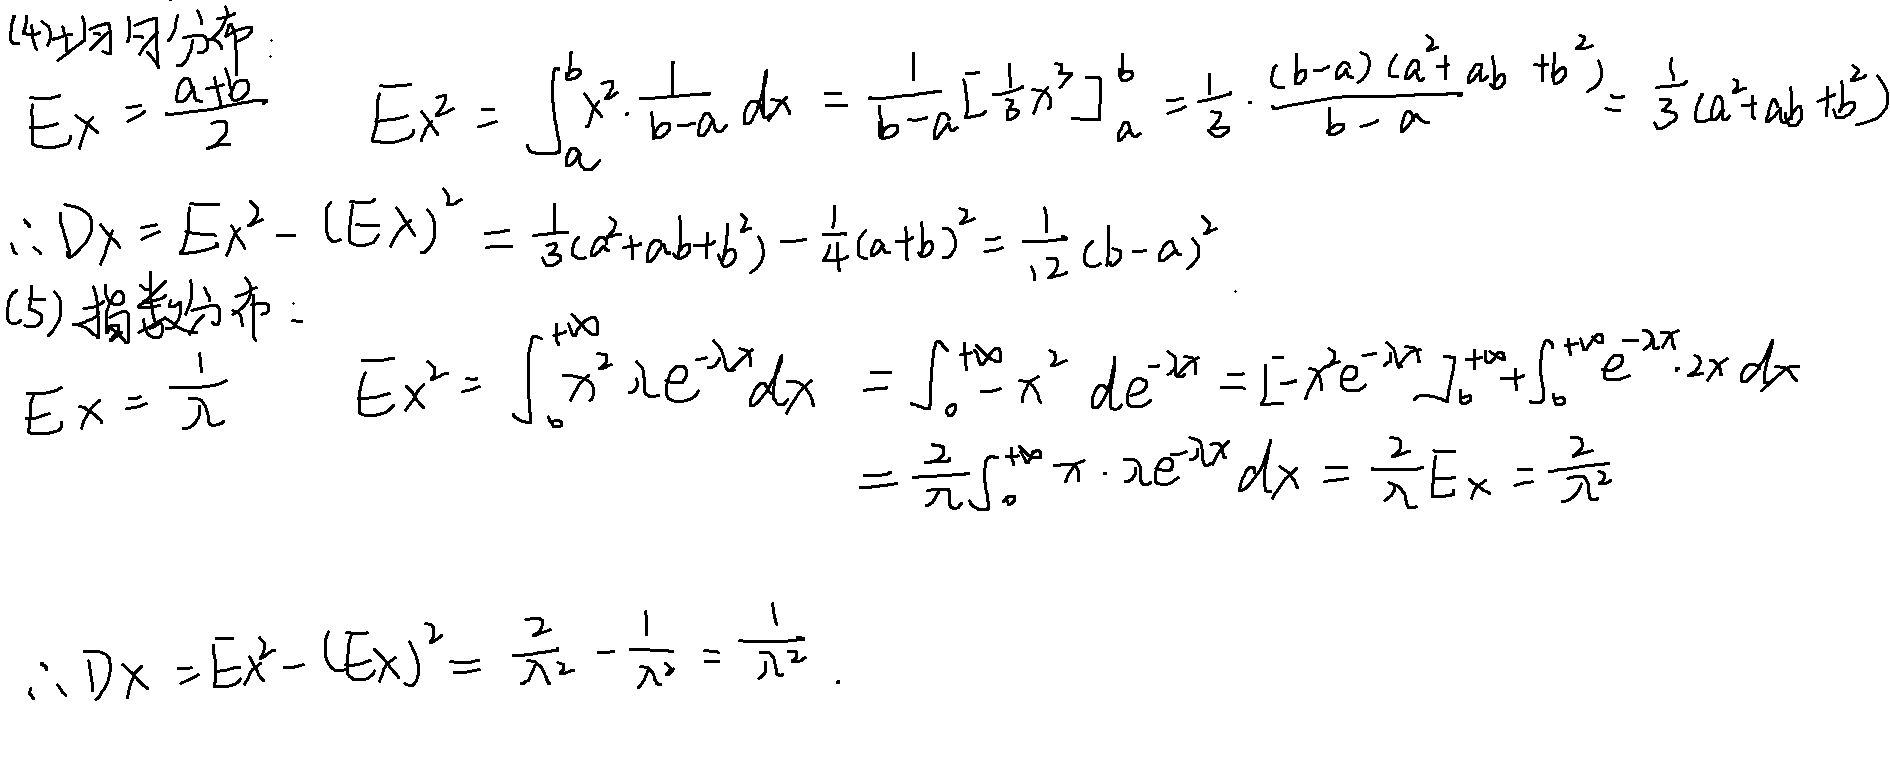 (4) 均匀分布:
Ex = \frac{a+b}{2}  Ex^2 = \int_a^b x^2 \cdot \frac{1}{b-a} dx = \frac{1}{b-a} [\frac{1}{3}x^3]_a^b = \frac{1}{3} \cdot \frac{(b-a)(a^2+ab+b^2)}{b-a} = \frac{1}{3}(a^2+ab+b^2)
∴ Dx = Ex^2 - (Ex)^2 = \frac{1}{3}(a^2+ab+b^2) - \frac{1}{4}(a+b)^2 = \frac{1}{12}(b-a)^2
(5) 指数分布:
Ex = \frac{1}{λ}  Ex^2 = \int_0^{+∞} x^2 λe^{-λx} dx = \int_0^{+∞} -x^2 de^{-λx} = [-x^2e^{-λx}]_0^{+∞} + \int_0^{+∞} e^{-λx} \cdot 2x dx
= \frac{2}{λ} \int_0^{+∞} x \cdot λe^{-λx} dx = \frac{2}{λ} Ex = \frac{2}{λ^2}
∴ Dx = Ex^2 - (Ex)^2 = \frac{2}{λ^2} - \frac{1}{λ^2} = \frac{1}{λ^2}.